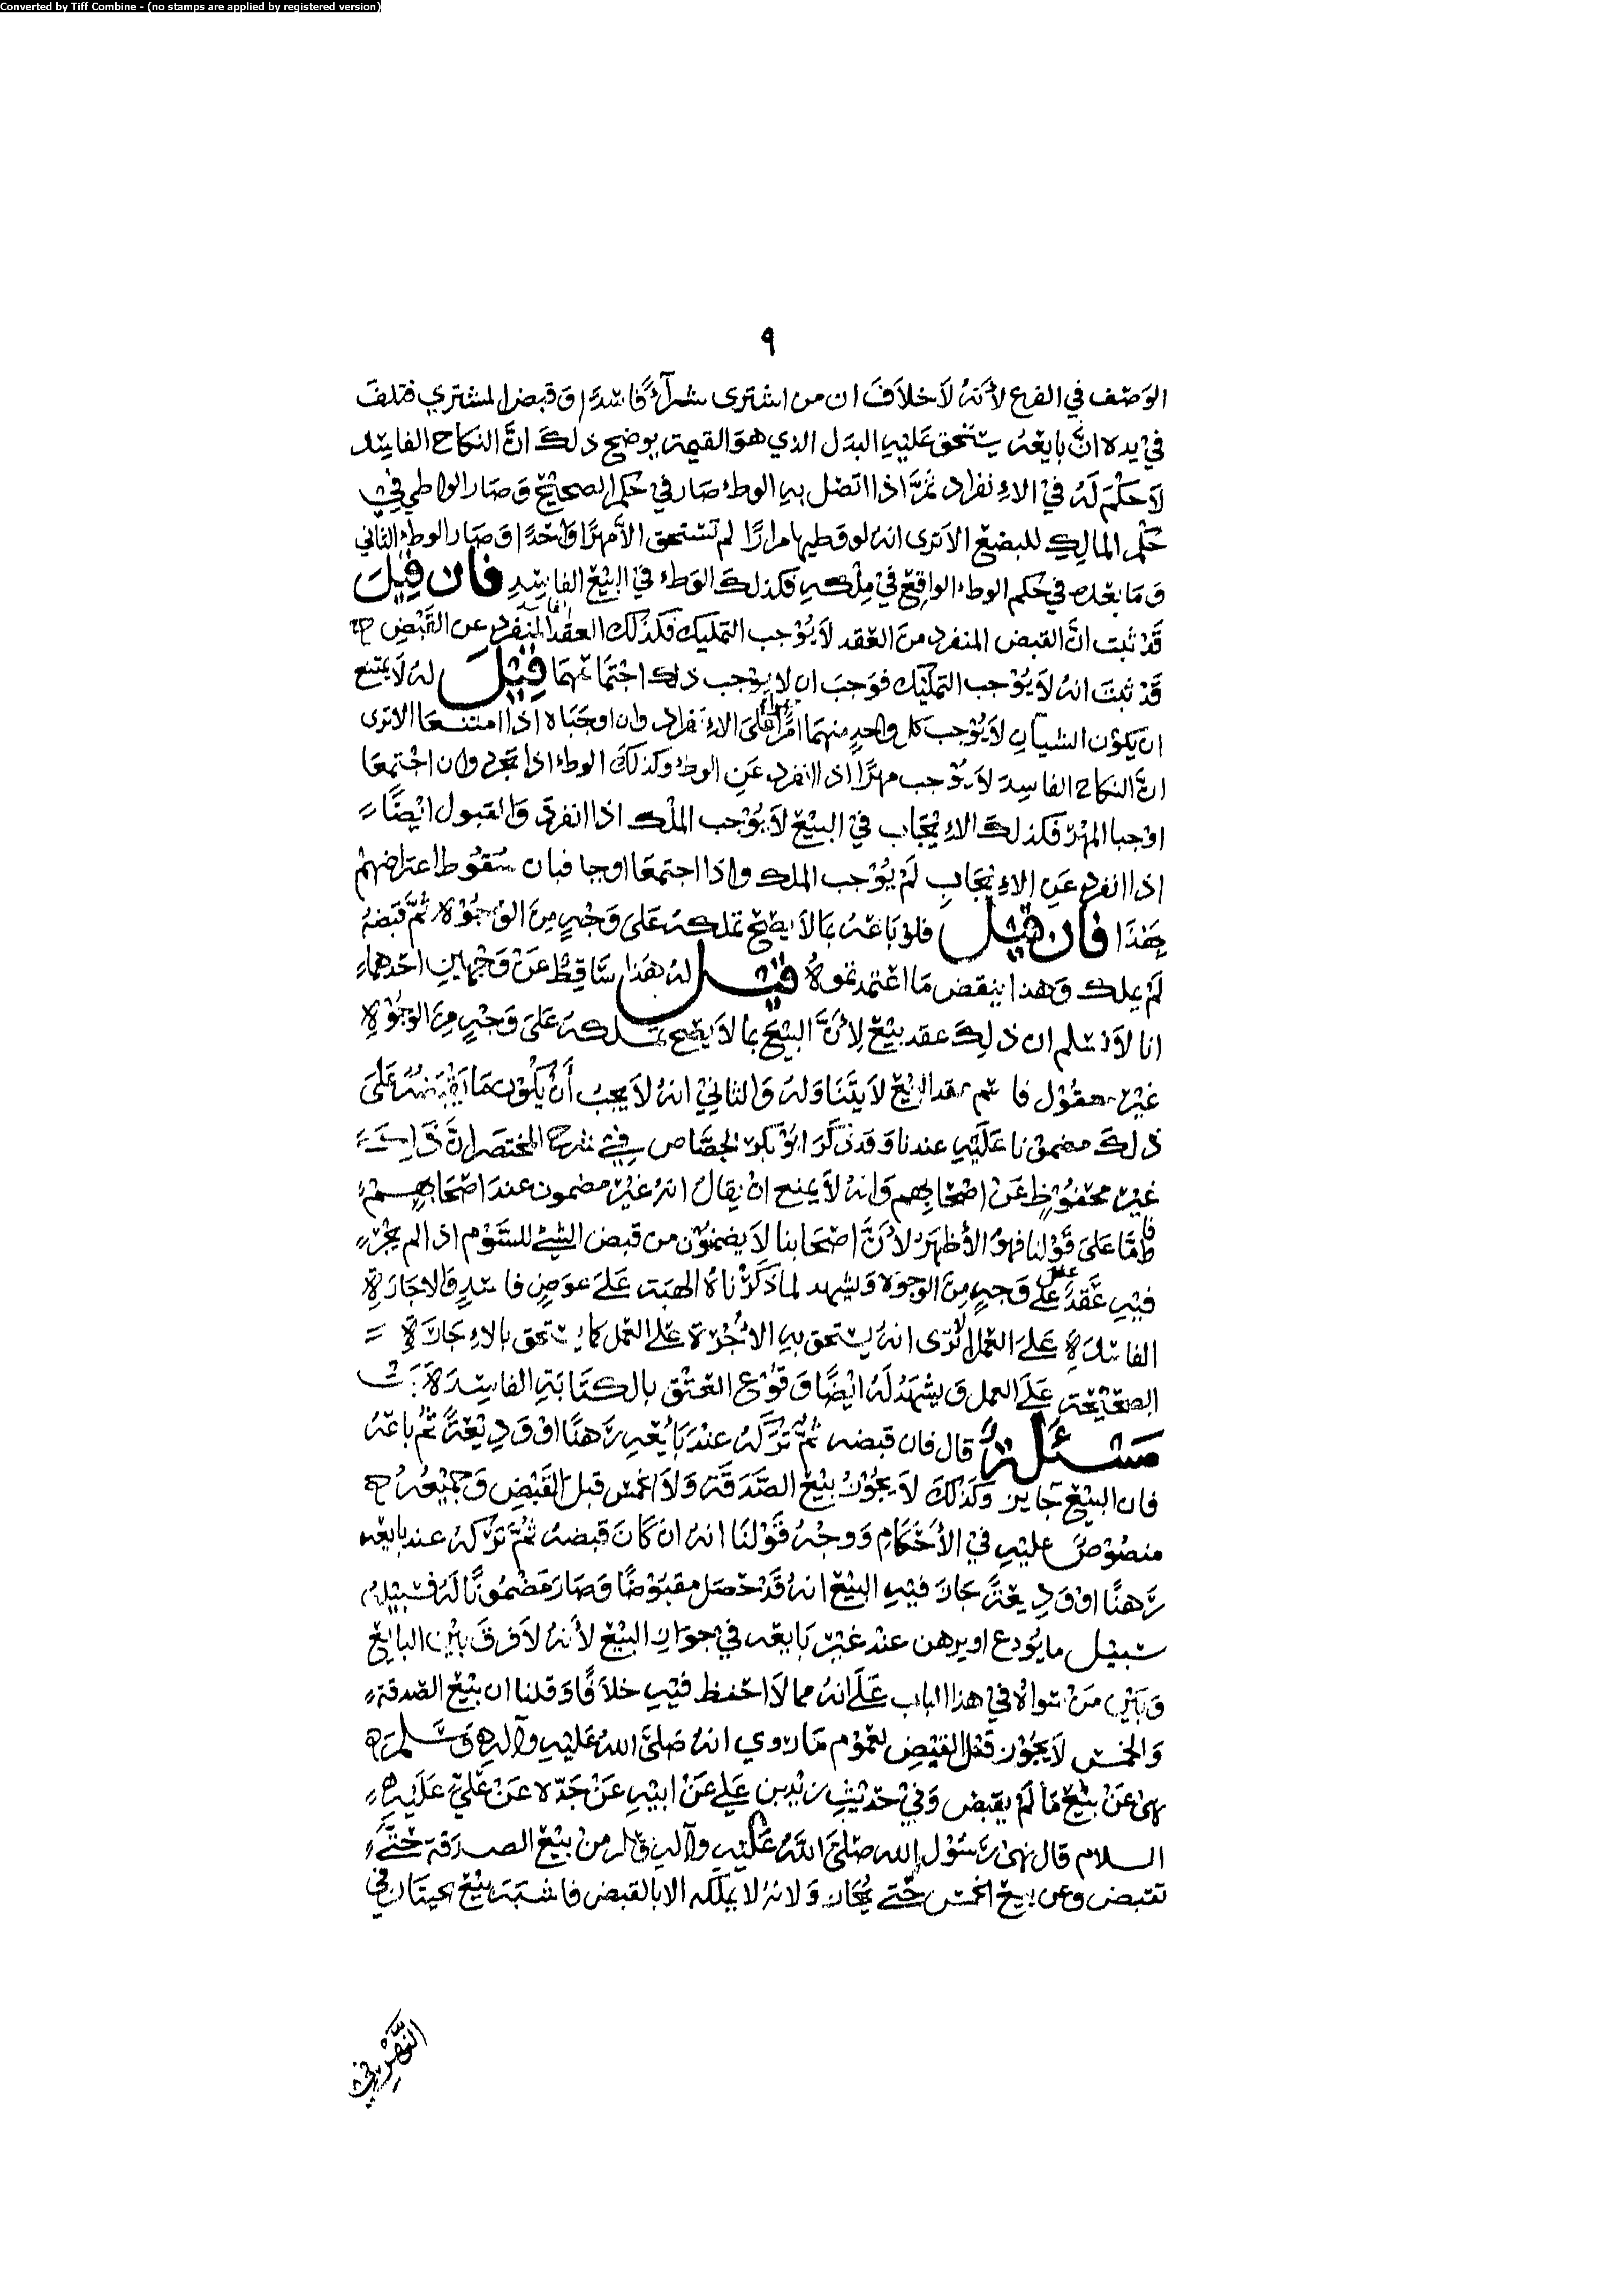 Converted by Tiff Combine - (no stamps are applied by registered version)
٩
الوَصْف في الفرع لأنَّهُ لاَ خلاَفَ ان من اشترى شرآءً فَاسِدًا وَقبض المشتري فتلفَ
في يده انَّ بايعَهُ يستحق عَليهِ البدَل الذي هوَ القيمة يوضح ذلكَ انَّ النكاح الفاسِد
لاَ حكْمَ لَهُ في الاِنفراد ثمَّ اذا اتصَل بهِ الوطءُ صَار في حكم الصحيْح وَصَار الواطي في
حكْم المالِكِ للبضعِ الا ترى انه لو وَطيها مرارًا لم تستحق الاَّ مهرًا وَاحدًا وَصَار الوطءُ الثاني
وَمَا بعْده في حُكم الوطءِ الواقع في مِلْكهِ فكذلكَ الوَطءُ في البيْع الفاسِدِ فان قِيْلَ
قَدْ ثبت انَّ القبض المنفرد منَ العَقد لاَ يُوْجب التمليك فكذلك العقد المنفرد عن القَبْضِ
قَدْ ثبتَ انهُ لاَ يُوْجب التمليْك فوَجبَ ان لا يوْجب ذلك اجْتمَاعهمَا قِيْلَ لهُ لاَ يمتنع
ان يكوْن الشيآنِ لاَ يُوْجب كل واحِدٍ منهمَا امْرًا عَلىَ الاِنفراد وان اوجَبَاه اذا اجتمعَا الا ترى
انَّ النكاح الفاسِد لاَ يُوْجب مهرًا اذا انفرد عَنِ الوطءِ وكذلكَ الوطءُ اذا تجرد وان اجْتمعَا
اوْجبا المهْرَ فكذلكَ الاِيْجَاب في البيْعِ لاَ يُوْجب المِلْك اذا انفردَ وَالقبول ايْضًا
اذا انفرد عَنِ الاِيْجَابِ لَمْ يُوْجب الملك واذا اجتمعَا اوجبا فبان سُقوْط اعتراضهمْ
بهَذَا فان قيْل فلوْ بَاعَهُ بمَا لاَ يصِحّ تملكهُ عَلىَ وَجْهٍ مِنَ الوُجُوْهِ ثمَّ قبَضهُ
لَمْ يملك وَهذا ينقض مَا اعْتمدتموهُ قيْل لهُ هَذا سَاقِطٌ عَنْ وَجْهَينِ احدهمَا
انا لاَ نسَلم ان ذلِكَ عقد بيْعٍ لأَنَّ البيْعَ بما لاَ يصِح تملكهُ عَلىَ وَجْهٍ مِنَ الوُجُوْهِ
غيْر معقُوْل فاسم عقد البيْع لاَ يتَنَاوَلهُ وَالثانيْ انهُ لاَ يجبُ أَنْ يكوْن مَا يقْبضهُ عَلىَ
ذلكَ مضموْنا عَليْهِ عندنا وَقد ذكَرَ ابوْ بكر الجصَّاص في شرح المختصر انَّ ذَلِكَ
غيْر محْفُوْظٍ عَنْ اصْحَابهم وَانه لاَ يمنع انْ يقال انهُ غيْر مضمون عند اصْحَابهمْ
فامَّا عَلىَ قَوْلنا فهوَ الأظهَرُ لأنَّ اصْحَابنا لاَ يضمنوْن من قبض الشئ للسَّوْم اذا لم يجْر
فيْهِ عَقدٌ عَلى وَجهٍ مِنَ الوُجوْه وَيشهد لما ذكرْناهُ الهبَة عَلىَ عوَضٍ فاسدٍ وَالاِجَارَةِ
الفَاسِدَةِ عَلىَ العَمَل الا ترى انهُ يستحق بهِ الاُجْرَة عَلى العَمل كما يستحق بالاِجَارَةِ
الصحيحة عَلىَ العمل وَيشهَدُ لَهُ ايْضًا وَقوْع العَتْق بالكتَابَةِ الفاسِدَة
مَسْئَلة قال فان قبضه ثمَّ ترَكهُ عنْدَ بَائِعهِ رَهنًا اوْ وَديْعَةً ثم باعَهُ
فان البيْع جَايز وَكذلكَ لاَ يجُوْزُ بيْع الصَّدَقة وَلاَ الخمْس قبلَ القَبْضِ وَجميْعهُ
منصُوْصٌ عليْهِ في الأحْكَامِ وَوجْهُ قوْلنَا انه ان كَانَ قبضهُ ثُمَّ ترَكهُ عند بايعه
رَهنًا اوْ وَديعَةً جَازَ فيْهِ البيْع انهُ قَدْ حَصَل مقبُوْضًا وَصَار مَضْمُونًا لَهُ فسَبيْلهُ
سبيْل ما يُودع او يرهن عند غيْر بَايعه في جوَازِ البيْع لأنهُ لاَ فرقَ بيْن البايع
وَبَيْن مَنْ سوَاهُ في هذا الباب عَلىَ انهُ مما لاَ احْفظ فيْهِ خلاَفًا وَقلنا ان بيْع الصّدقة
وَالخمْس لاَ يجُوْز قبْل القبْضِ لعُمُوْم مَا رُوي انهُ صَلىَ اللهُ عَليْهِ وآلهِ وَسَلم
نهىَ عَنْ بيْعِ مَا لَمْ يقبض وَفيْ حَديْثِ زيْد بن عَلي عَنْ ابيْهِ عَنْ جَدّه عَنْ عَليّ عَليْهم
السلام قال نهىَ رَسُوْل الله صَلىَ اللهُ عَليْهِ وآلهِ وسلم عنْ بيْع الصدَقة حَتَّى
تقبض وعن بيع الخمْس حَتى يُحَاز وَلانهُ لا يملكه الا بالقبض فاشبَهَ بيْع الحيتَان في